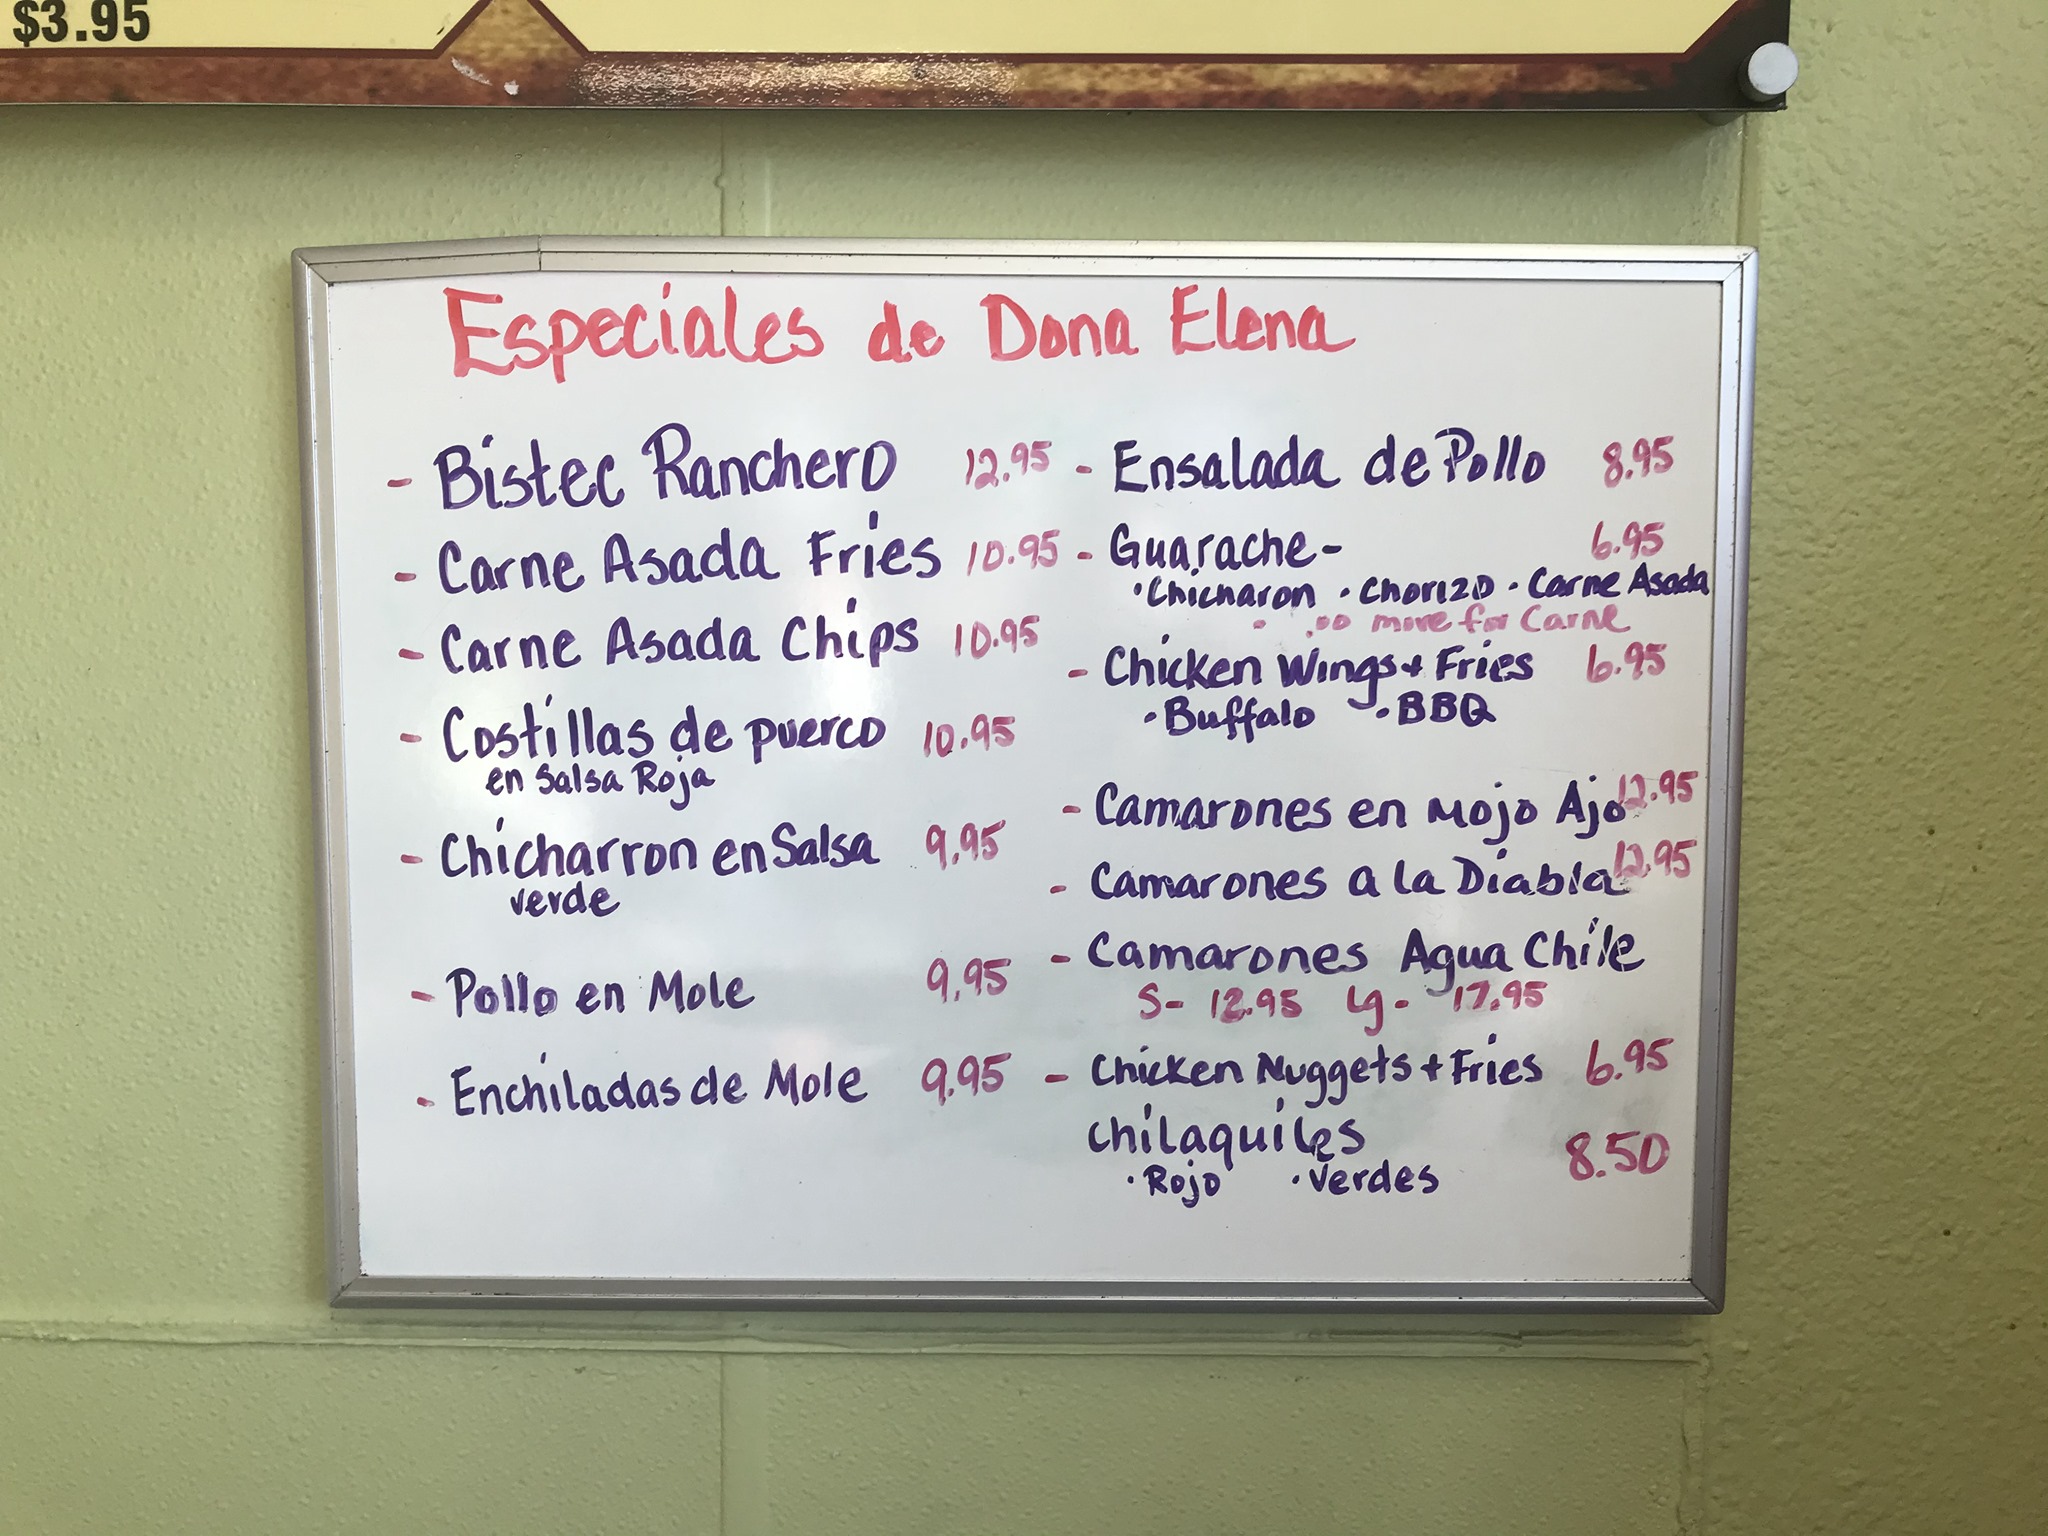 $3.95
Especiales de Dona Elena
- Bistec Ranchero 12.95
- Carne Asada Fries 10.95
- Carne Asada Chips 10.95
- Costillas de puerco 10.95
en Salsa Roja
- Chicharron en Salsa 9.95
verde
- Pollo en Mole 9.95
- Enchiladas de Mole 9.95
- Ensalada de Pollo 8.95
- Guarache- 6.95
• Chicharon • Chorizo • Carne Asada
.00 more for Carne
- Chicken Wings + Fries 6.95
• Buffalo • BBQ
- Camarones en Mojo Ajo 12.95
- Camarones a la Diabla 12.95
- Camarones Agua Chile
S- 12.95 Lg- 17.95
- Chicken Nuggets + Fries 6.95
Chilaquiles 8.50
• Rojo • Verdes